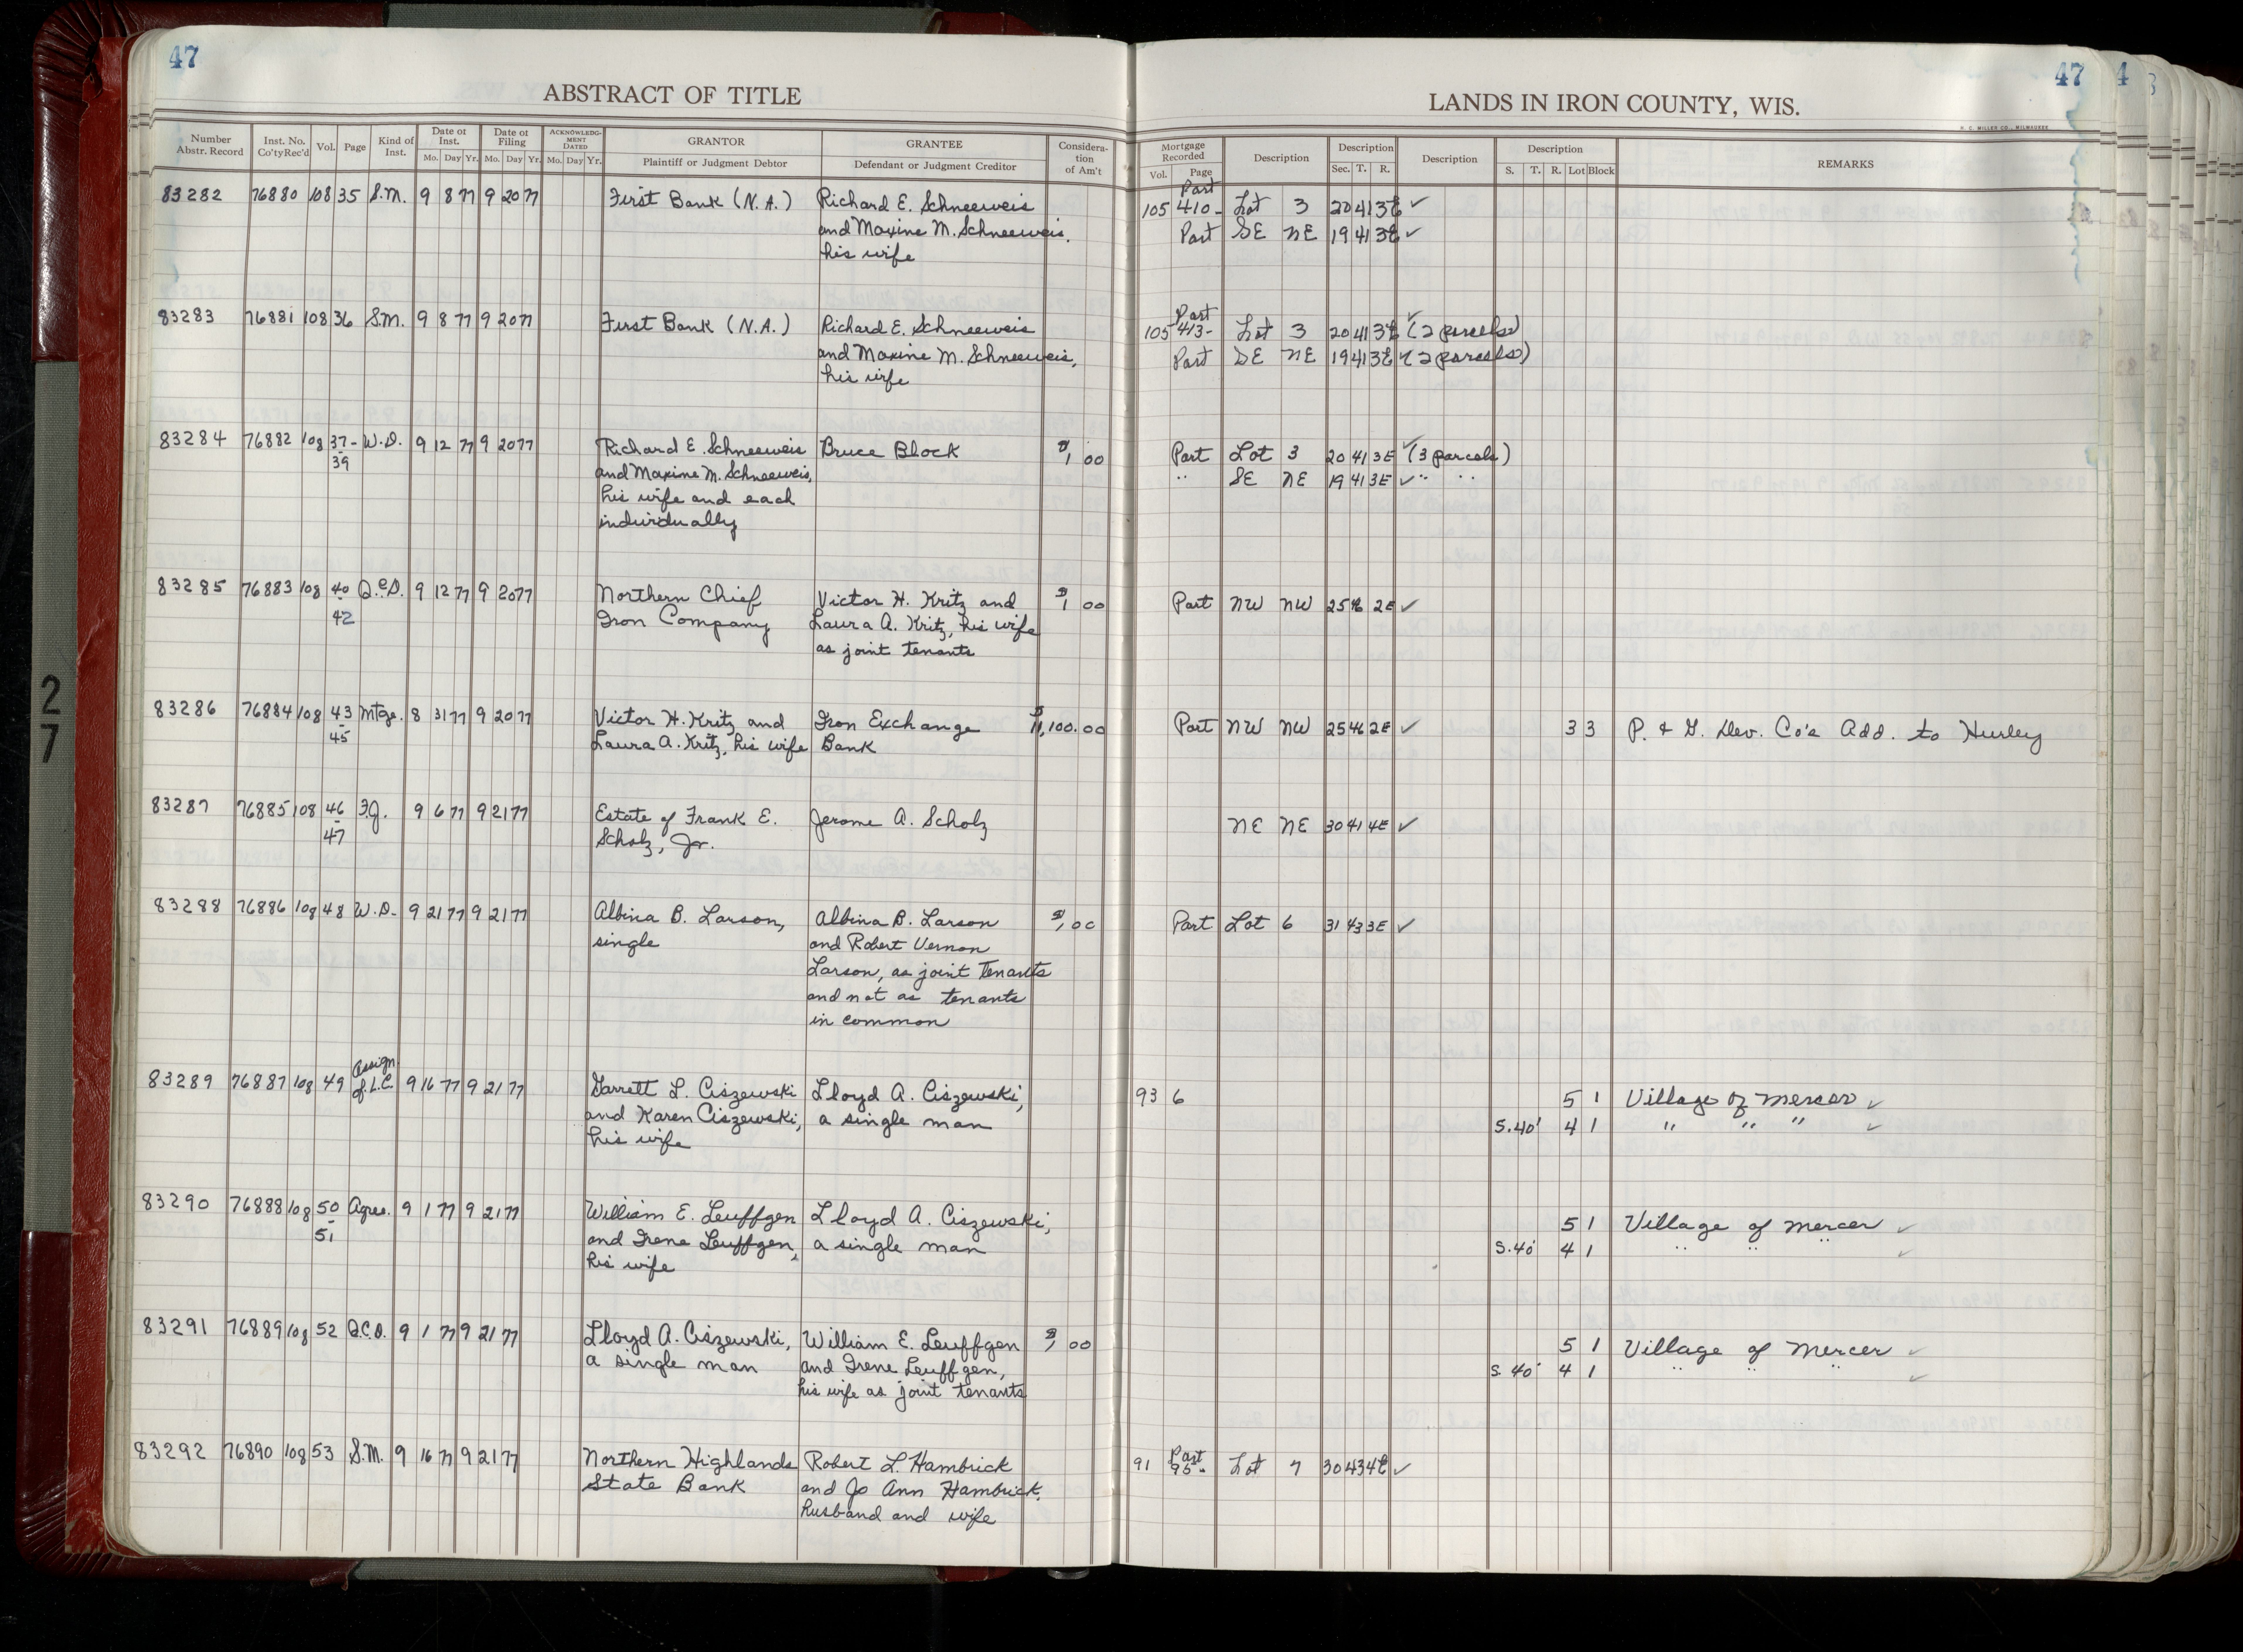 47
47
4
ABSTRACT OF TITLE
LANDS IN IRON COUNTY, WIS.
H. C. MILLER CO., MILWAUKEE
Number Abstr. Record Inst. No. Co'ty Rec'd Vol. Page Kind of Inst. Date of Inst. Mo. Day Yr. Date of Filing Mo. Day Yr. ACKNOWLEDGMENT DATED Mo. Day Yr. GRANTOR Plaintiff or Judgment Debtor GRANTEE Defendant or Judgment Creditor Consideration of Am't Mortgage Recorded Vol. Page Description Description Sec. T. R. Description Description S. T. R. Lot Block REMARKS
Part
83282 76880 108 35 S.M. 9 8 77 9 20 77 First Bank (N.A.) Richard E. Schneeweis 105 410- Lot 3 20 41 3E ✓
and Maxine M. Schneeweis, Part SE NE 19 41 3E ✓
his wife
Part
83283 76881 108 36 S.M. 9 8 77 9 20 77 First Bank (N.A.) Richard E. Schneeweis 105 413- Lot 3 20 41 3E ✓ (2 parcels)
and Maxine M. Schneeweis, Part SE NE 19 41 3E ✓ (2 parcels)
his wife
83284 76882 108 37-39 W.D. 9 12 77 9 20 77 Richard E. Schneeweis Bruce Block $1 00 Part Lot 3 20 41 3E ✓ (3 parcels)
and Maxine M. Schneeweis, " SE NE 19 41 3E ✓ " "
his wife and each
individually
83285 76883 108 40-42 Q.C.D. 9 12 77 9 20 77 Northern Chief Victor H. Kritz and $1 00 Part NW NW 25 46 2E ✓
Iron Company Laura A. Kritz, his wife
as joint tenants
83286 76884 108 43-45 Mtge. 8 31 77 9 20 77 Victor H. Kritz and Iron Exchange $11,100.00 Part NW NW 25 46 2E ✓ 3 3 P. & G. Dev. Co's Add. to Hurley
Laura A. Kritz, his wife Bank
83287 76885 108 46-47 F.J. 9 6 77 9 21 77 Estate of Frank E. Jerome A. Scholz NE NE 30 41 4E ✓
Scholz, Jr.
83288 76886 108 48 W.D. 9 21 77 9 21 77 Albina B. Larson, Albina B. Larson $1,00 Part Lot 6 31 43 3E ✓
single and Robert Vernon
Larson, as joint tenants
and not as tenants
in common
Assign.
83289 76887 108 49 of L.C. 9 16 77 9 21 77 Garrett L. Ciszewski Lloyd A. Ciszewski, 93 6 5 1 Village of Mercer ✓
and Karen Ciszewski, a single man S.40' 4 1 " " " ✓
his wife
83290 76888 108 50-51 Agree. 9 1 77 9 21 77 William E. Leuffgen Lloyd A. Ciszewski, 5 1 Village of Mercer ✓
and Irene Leuffgen, a single man S.40' 4 1 " " " ✓
his wife
83291 76889 108 52 Q.C.D. 9 1 77 9 21 77 Lloyd A. Ciszewski, William E. Leuffgen $1 00 5 1 Village of Mercer ✓
a single man and Irene Leuffgen, S. 40' 4 1 " " " ✓
his wife as joint tenants
Part
83292 76890 108 53 S.M. 9 16 77 9 21 77 Northern Highlands Robert L. Hambrick 91 95- Lot 7 30 43 4E ✓
State Bank and Jo Ann Hambrick,
husband and wife
27